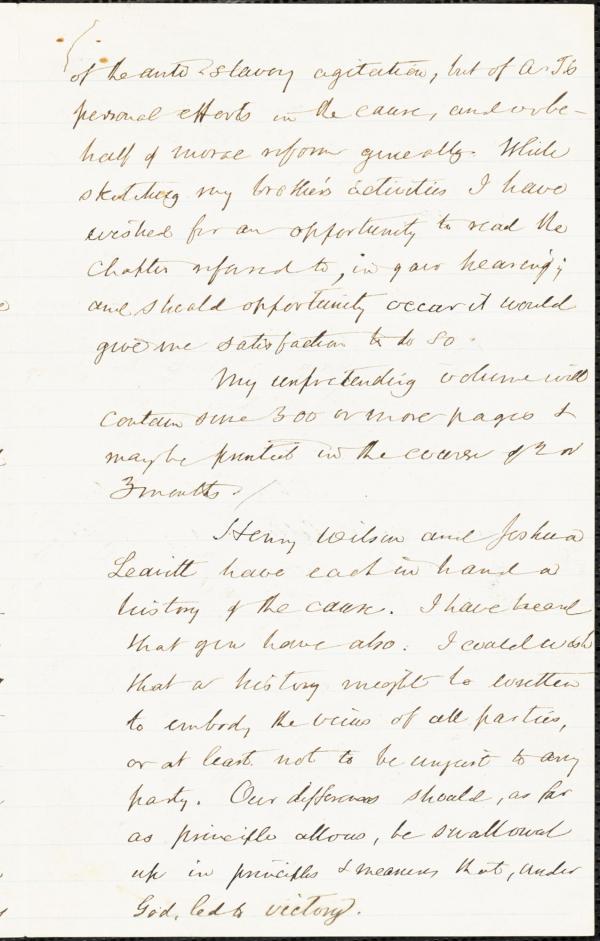 of the anti-slavery agitation, but of A. T's
personal efforts in the cause, and in be-
half of moral reform generally. While
sketching my brother's activities I have
wished for an opportunity to read the
chapter referred to, in your hearing;
and should opportunity occur it would
give me satisfaction to do so.
My unpretending volume will
contain some 300 or more pages &
may be printed in the course of 2 or
3 months.
Henry Wilson and Joshua
Leavitt have each in hand a
history of the cause. I have heard
that you have also. I could wish
that a history might be written
to embody the views of all parties,
or at least not to be unjust to any
party. Our differences should, as far
as principle allows, be swallowed
up in principles & measures that, under
God, led to victory.